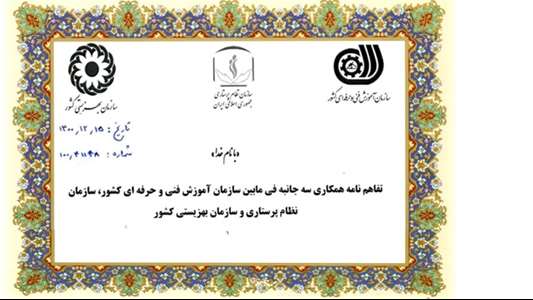 سازمان آموزش فنی و حرفه ای کشور
سازمان نظام پرستاری
جمهوری اسلامی ایران
سازمان بهزیستی کشور
تاریخ : ۱۴۰۰,۱۲,۱۵
شماره : ۱۰۰,۴۱۱۴۸
«با نام خدا»
تفاهم نامه همکاری سه جانبه فی مابین سازمان آموزش فنی و حرفه ای کشور، سازمان
نظام پرستاری و سازمان بهزیستی کشور